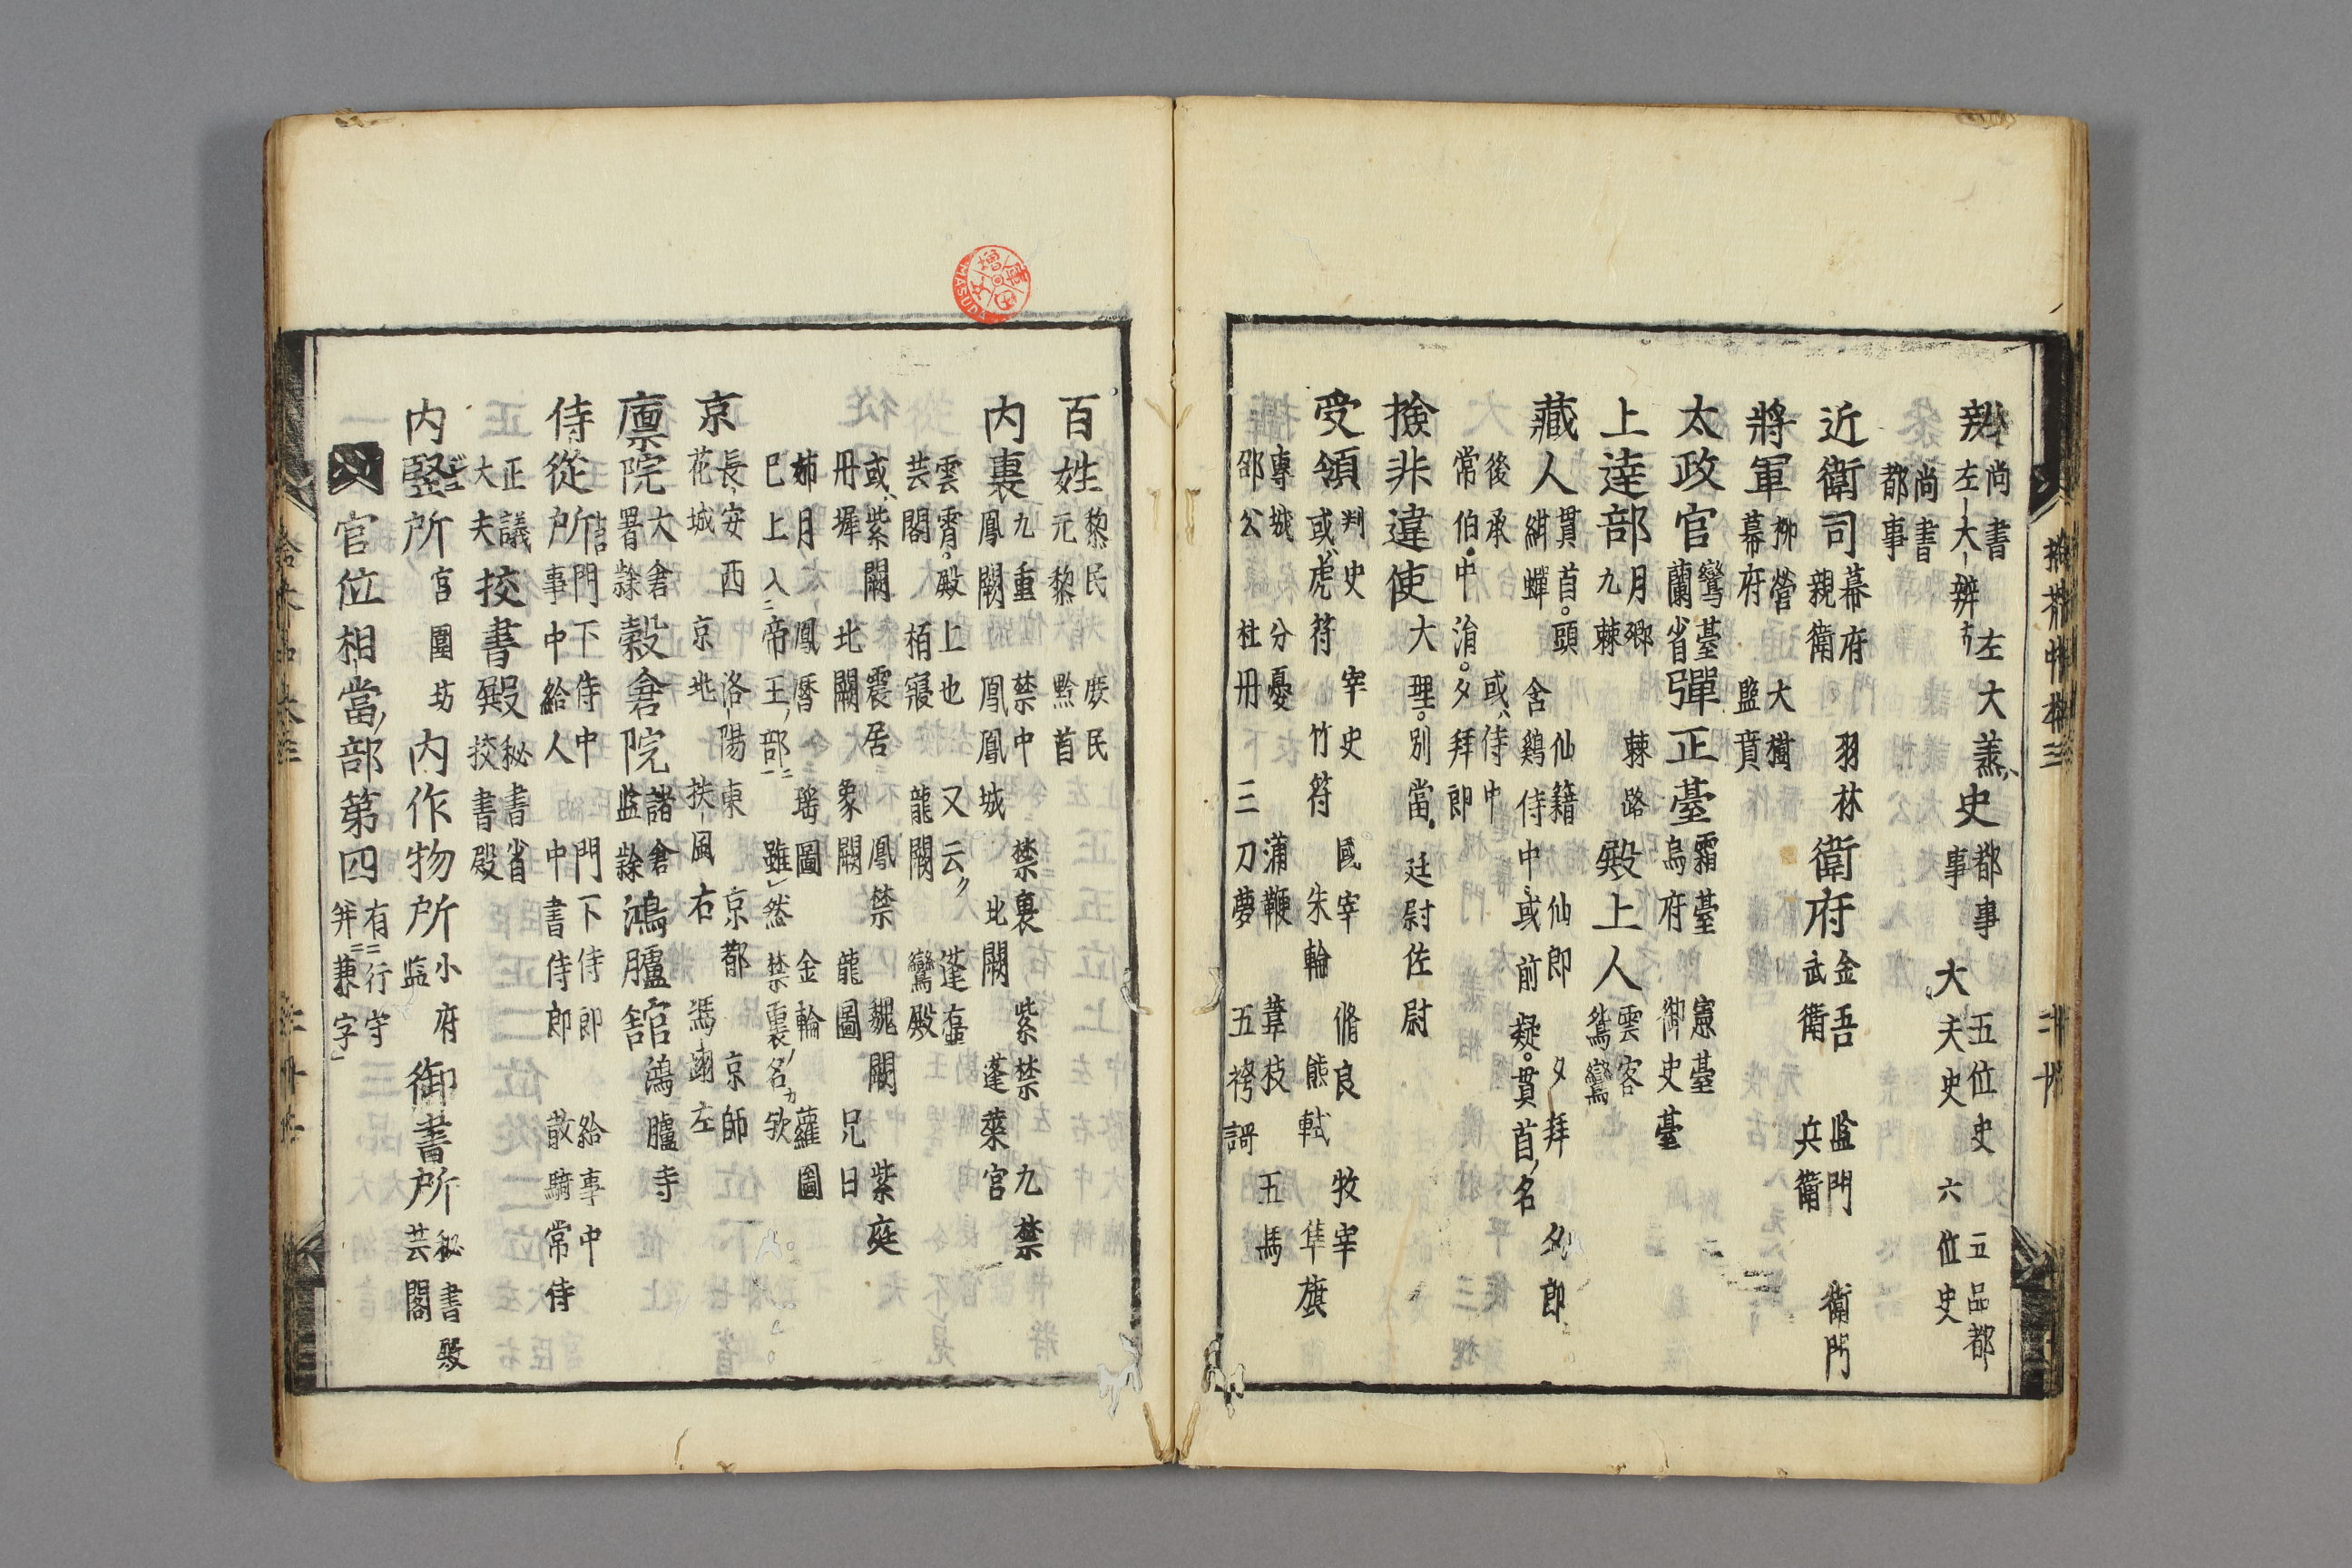 辨 尚書 左-大-辨 左大羕 史 都事 五位史 五品都
事 大夫史 六位史
尚書
都事
近衛司 幕府 羽林 親衛 衛府 金吾 監門 衛門 武衛 兵衛
將軍 柳營 大樹 幕府 監賁
太政官 鸞臺 蘭省 彈正臺 霜臺 憲臺 烏府 御史臺
上達部 月卿 棘路 九棘 殿上人 雲客 鴛鸞
藏人 貫首。頭 仙籍 仙郎 夕拜 夕郎
紺蟬 含鷄 侍中 或前疑。貫首名
後承 或侍中
常伯。中涓。夕拜郎
撿非違使 大理。別當 廷尉佐尉
受領 判史 宰史 國宰 脩良 牧宰
或虎符 竹符 朱輪 熊軾 隼旗
專城 分憂 蒲鞭 葦枝 五馬
邵公 杜冊 三刀夢 五袴謌
百姓 黎民 庶民 元黎 黔首
內裏 九重 禁中 禁裏 紫禁 九禁
鳳闕 鳳凰城 北闕 蓬萊宮
雲霄。殿上也 又云 蓬壺
芸閣 栢寢 龍閣 鸞殿
或紫闕 震居 鳳禁 魏闕 紫庭
丹墀 北闕 象闕 龍圖 兄日
姉月 鳳曆 瑤圖 金輪 蘿圖
已上入帝王部 雖然禁裏名欤
京 長安西 洛陽東 京都 京師
花城 京兆 扶風右 馮翊左
廩院 大倉署 穀倉院 諸倉監 鴻臚館 鴻臚寺
侍從所 門下侍中 門下侍郎 給事中
事中給人 中書侍郎 散騎常侍
正議大夫 挍書殿 秘書省 挍書殿
內豎所 宮圍坊 內作物所 小府監 御書所 秘書殿 芸閣
官位相當部第四 有行守 并兼字